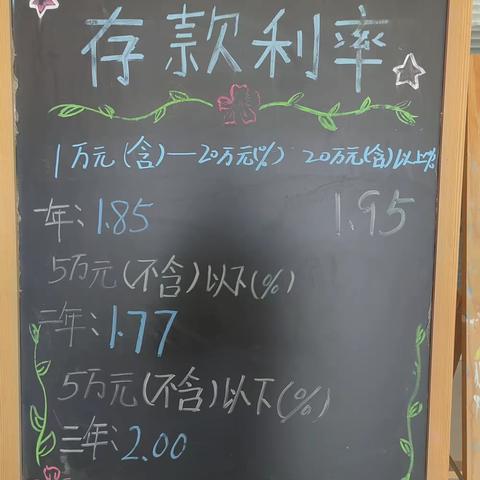 存款利率
1万元(含)—20万元(%) 20万元(含)以上%
一年:1.85 1.95
5万元(不含)以下(%)
二年:1.77
5万元(不含)以下(%)
三年:2.00